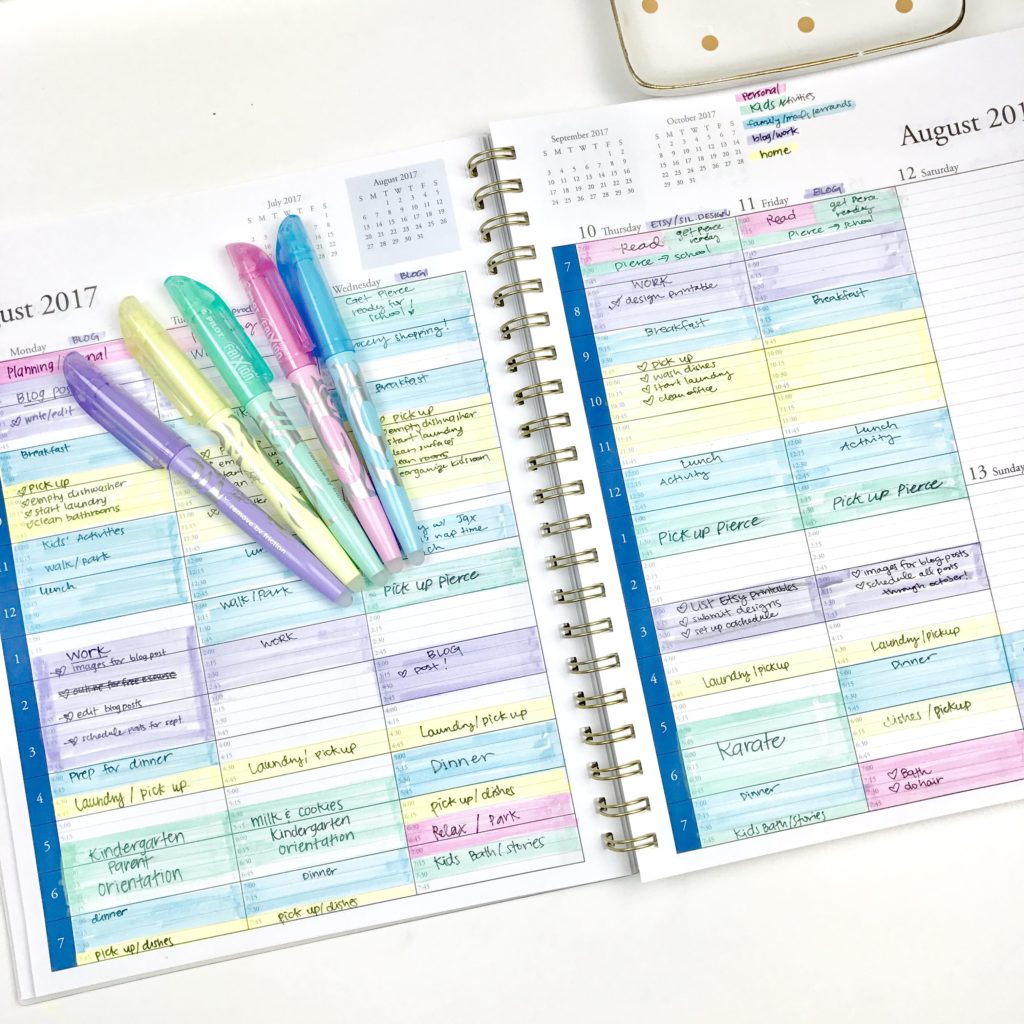 July 2017
S M T W T F S
August 2017
S M T W T F S
1 2 3 4 5
6 7 8 9 10 11 12
13 14 15 16 17 18 19
20 21 22 23 24 25 26
27 28 29 30 31
2017
Monday
BLOG
Planning/
BLOG
write/edit
Breakfast
pick up
empty dishwasher
start laundry
clean bathrooms
Kids' Activities
walk/park
lunch
WORK
images for blog post
outline for free course
edit blog posts
schedule posts for sept.
Prep for dinner
Laundry / pick up
Kindergarten
Parent
Orientation
dinner
pick up/dishes
PILOT FRIXION
remove by friction
walk/Park
WORK
Laundry/ pickup
milk & cookies
Kindergarten
orientation
Dinner
pick up/dishes
Wednesday
BLOG
Get Pierce
ready for
school!
grocery shopping!
Breakfast
pick up
empty dishwasher
start laundry
clean surfaces
clean rooms
organize kids room
w/ Jax
nap time
Pick up Pierce
BLOG
post!
Laundry/pickup
Dinner
pick up/dishes
Relax / Park
Kids Bath/stories
September 2017
S M T W T F S
1 2
3 4 5 6 7 8 9
10 11 12 13 14 15 16
17 18 19 20 21 22 23
24 25 26 27 28 29 30
October 2017
S M T W T F S
1 2 3 4 5 6 7
8 9 10 11 12 13 14
15 16 17 18 19 20 21
22 23 24 25 26 27 28
29 30 31
personal
Kids Activities
family/meals/errands
blog/work
home
August
10 Thursday
ETSY/SIL. DESIGN
Read
get Pierce
ready
Pierce → school
WORK
design printable
Breakfast
pick up
wash dishes
start laundry
clean office
Lunch
Activity
Pick up Pierce
List Etsy Printables
submit designs
set up
Laundry/pickup
Karate
Dinner
Kids Bath/Stories
11 Friday
BLOG
Read
get Pierce
ready
Pierce → school
Breakfast
Lunch
Activity
Pick up Pierce
images for blog posts
schedule all posts
through october!
Laundry/pickup
Dinner
dishes/pickup
Bath
do hair
12 Saturday
13 Sunday